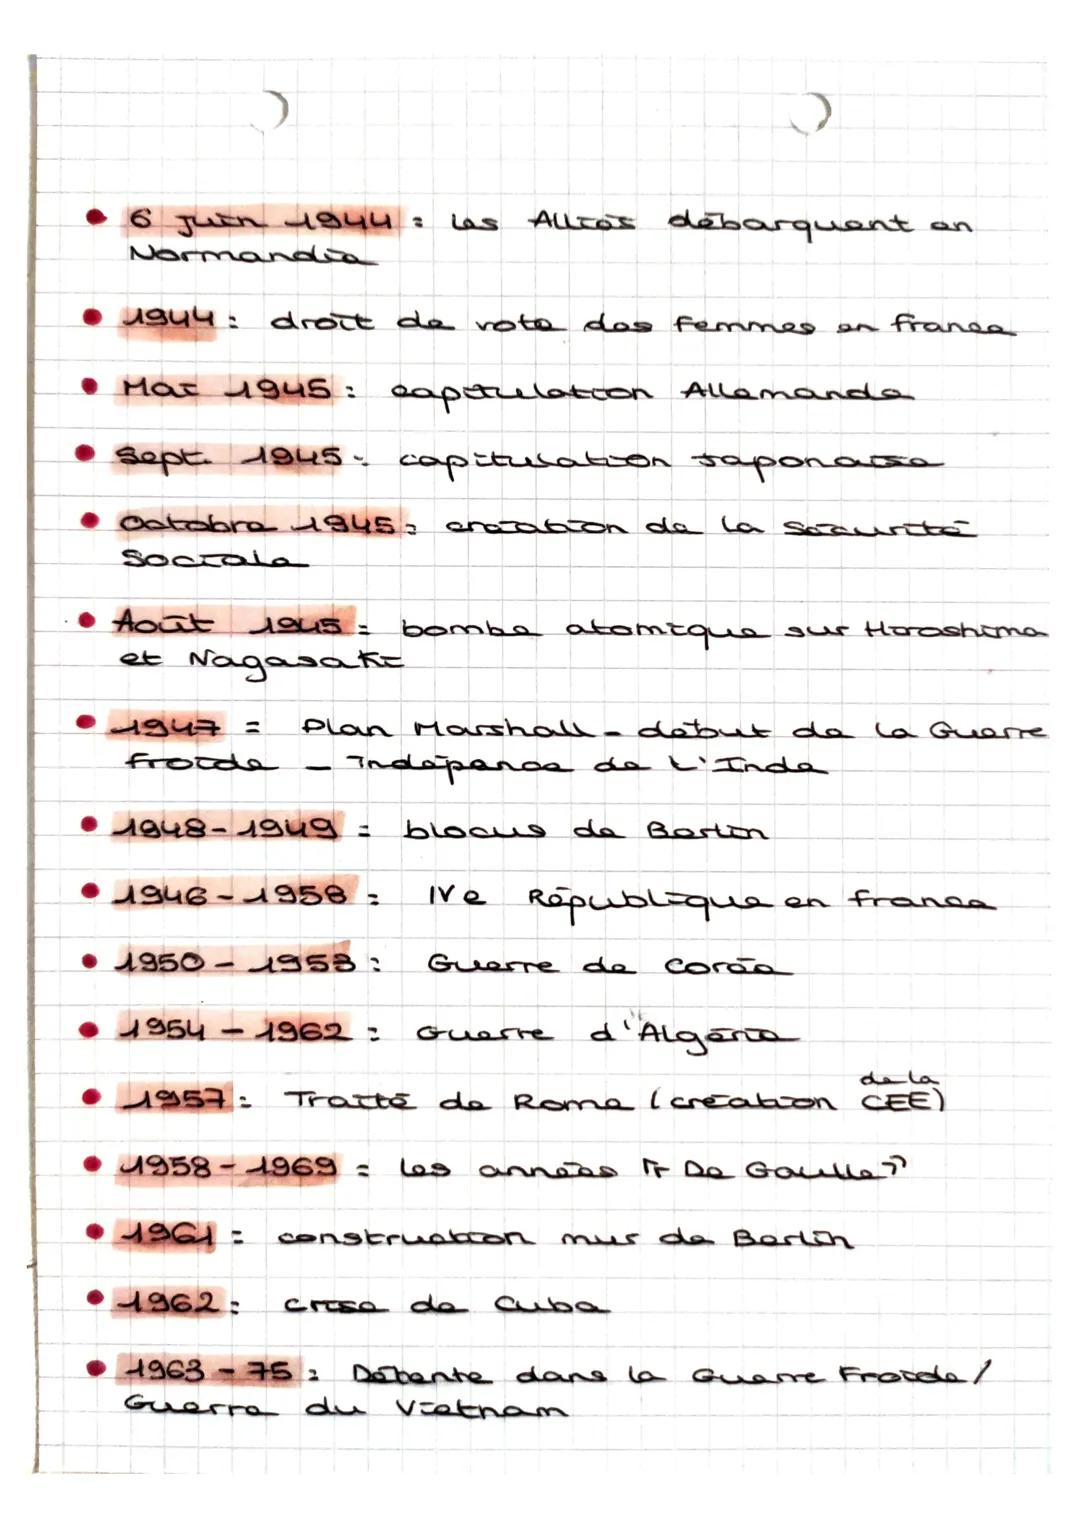 6 juin 1944 : les Alliés débarquent en
Normandie
1944 : droit de vote des femmes en france
Mai 1945 : capitulation Allemande
Sept. 1945 : capitulation Japonaise
Octobre 1945 : création de la Sécurité
Sociale
Août 1945 : bombe atomique sur Hiroshima
et Nagasaki
1947 = Plan Marshall - début de la Guerre
froide - Indépence de l'Inde
1948-1949 = blocus de Berlin
1946-1958 : IVe République en france
1950-1953 : Guerre de Corée
1954-1962 : Guerre d'Algérie
de la
1957 : Traité de Rome (création CEE)
1958-1969 = les années "De Gaulle"
1961 : construction mur de Berlin
1962 : crise de Cuba
1963-75 : Détente dans la Guerre Froide /
Guerre du Vietnam